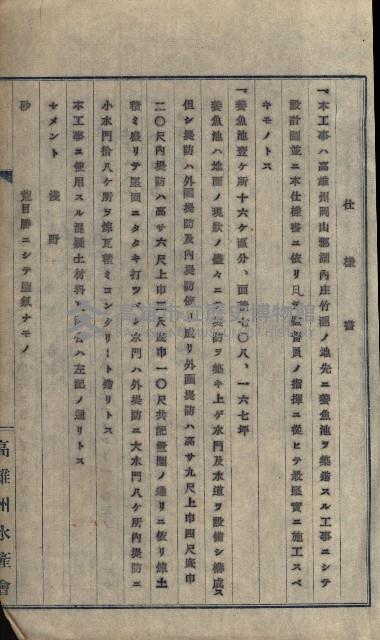 仕様書
一、本工事ハ高雄州岡山郡湖內庄竹滬ノ地先ニ養魚池ヲ築造スル工事ニシテ
設計圖並ニ本仕様書ニ依リ且ツ監督員ノ指揮ニ從ヒテ最堅實ニ施工スベ
キモノトス
一、養魚池壹ケ所十六ケ區分、面積七〇八、一六七坪
養魚池ハ地面ノ現狀ノ儘々ニ堤防ヲ築キ上ゲ水門及水道ヲ設備シ構成ス
但シ堤防ハ外圍堤防及內堤防ヨリ成リ外圍堤防ハ高サ九尺上巾四尺底巾
二〇尺內堤防ハ高サ六尺上巾二尺底巾一〇尺共記畫圖ノ通リニ依リ練土
積ミ盛リテ堅固ニタタキ打ツベシ水門ハ外堤防ニ大水門八ケ所內堤防ニ
小水門拾八ケ所ヲ煉瓦積ミコンクリート造リトス
本工事ニ使用スル混凝土材料 合ハ左記ノ通リトス
セメント 淺野
砂 荒目勝ニシテ鹽氣ナモノ
高雄州水產會
高雄市立歷史博物館